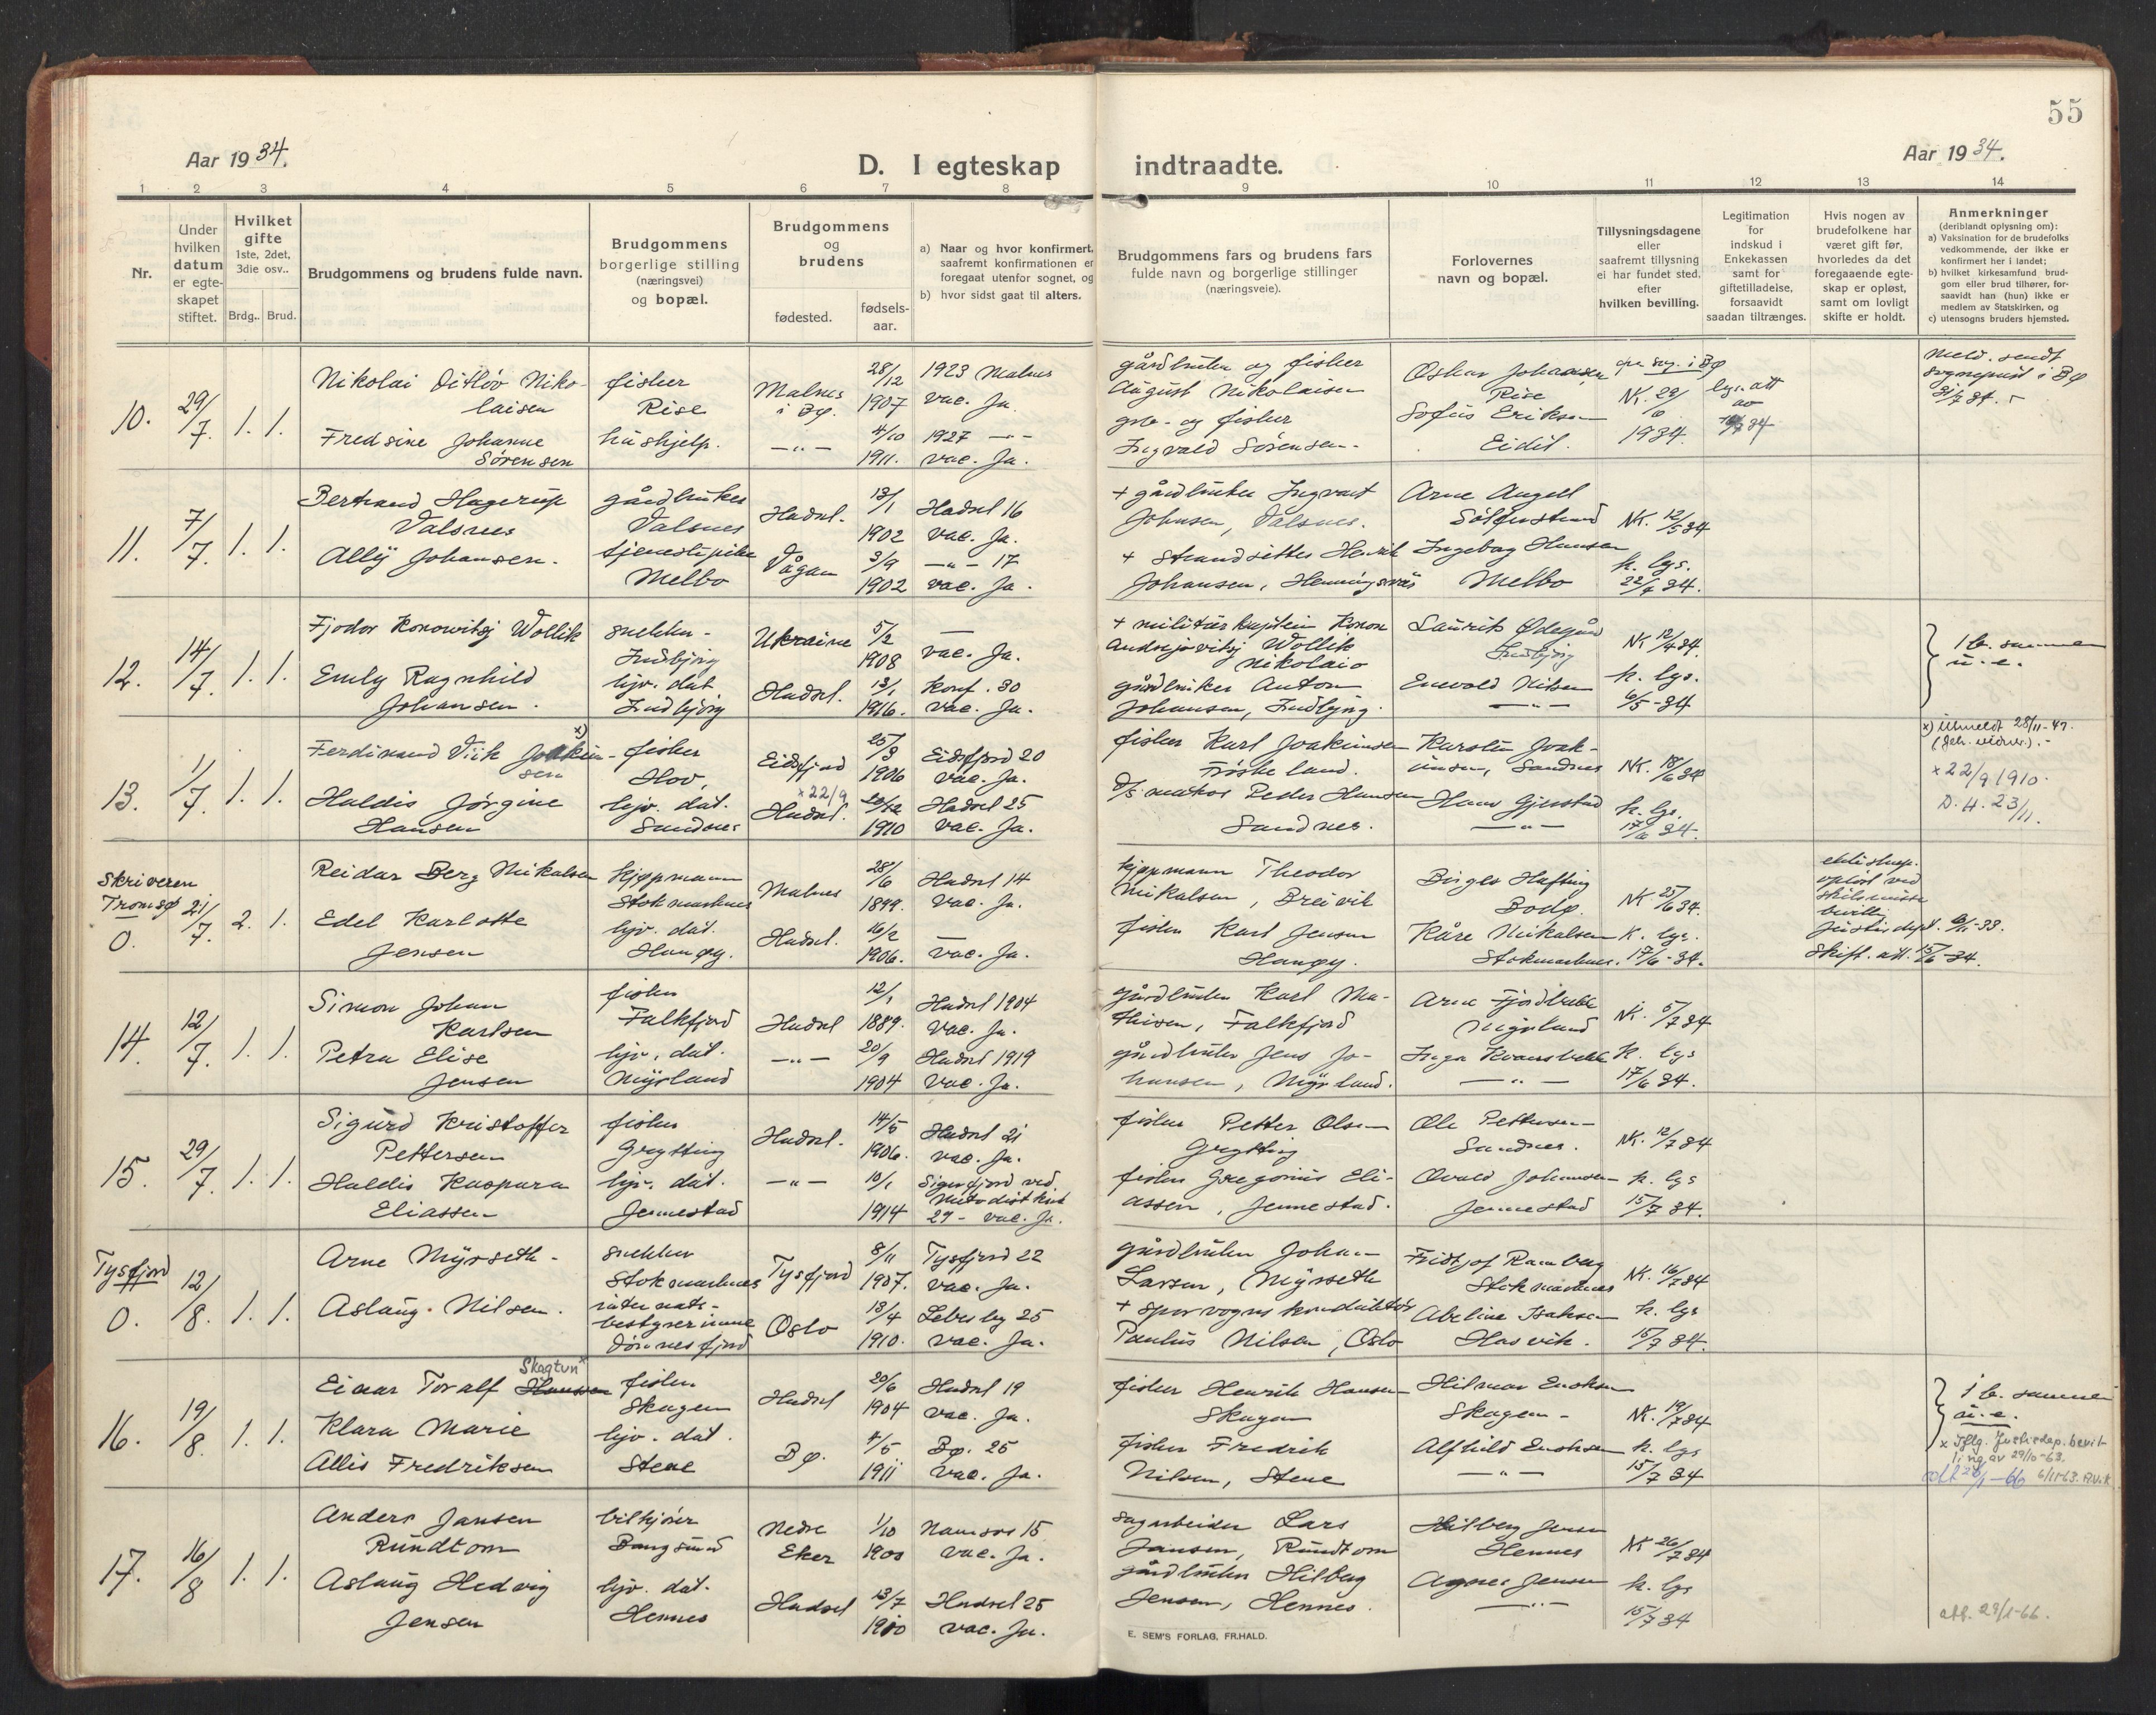 55
Aar 1934.
D. I egteskap indtraadte.
Aar 1934.
1 2 3 4 5 6 7 8 9 10 11 12 13 14
Nr.
Under hvilken datum er egteskapet stiftet.
Hvilket gifte 1ste, 2det, 3die osv..
Brdg.. Brud.
Brudgommens og brudens fulde navn.
Brudgommens borgerlige stilling (næringsvei) og bopæl.
Brudgommens og brudens
fødested.
fødselsaar.
a) Naar og hvor konfirmert, saafremt konfirmationen er foregaat utenfor sognet, og
b) hvor sidst gaat til alters.
Brudgommens fars og brudens fars fulde navn og borgerlige stillinger (næringsveie).
Forlovernes navn og bopæl.
Tillysningsdagene eller saafremt tillysning ei har fundet sted, efter hvilken bevilling.
Legitimation for indskud i Enkekassen samt for giftetilladelse, forsaavidt saadan tiltrænges.
Hvis nogen av brudefolkene har været gift før, hvorledes da det foregaaende egteskap er opløst, samt om lovligt skifte er holdt.
Anmerkninger (deriblandt oplysning om):
a) Vaksination for de brudefolks vedkommende, der ikke er konfirmert her i landet;
b) hvilket kirkesamfund brudgom eller brud tilhører, forsaavidt han (hun) ikke er medlem av Statskirken, og
c) utensogns bruders hjemsted.
10. 29/7. 1. 1.
Nikolai Ditløv Nikolaisen
fisker Rise
Malnes i Bø.
28/12 1907
1923 Malnes vac. Ja.
gårdbruker og fisker August Nikolaisen
Oskar Johansen Rise
NK. 29/6 1934.
meld. sendt sogneprest i Bø 31/7 34.
Fredsine Johanne Sørensen
hushjelp.
— " —
4/10 1911.
1927 — " — vac. Ja.
grb. og fisker Ingvald Sørensen.
Sofus Eriksen Eidet.
11. 7/7. 1. 1.
Bertrand Hagerup Valsnes
gårdbruker Valsnes
Hadsel.
13/1 1902
Hadsel 16 vac. Ja.
+ gårdbruker Ingvart Johnsen, Valsnes.
Arne Angell
NK. 12/5 34
Ally Johansen.
tjenestepike Melbo
Vågan
3/9 1902
— " — 17 vac. Ja.
+ Strandsitter Henrik Johansen, Henningsvær
Ingeborg Hansen Melbo
k. lys. 22/4 34.
12. 14/7. 1. 1.
Fjodor Konowitsj Wollik
snekker - Indbjörg
Ukraine
5/2 1908
— vac. Ja.
+ militärkaptein Konon Andrejovitsj Wollik Nikolaio
Laurits Ødegård Indbjörg
NK 12/4 34.
1 b. sammen u. e.
Emly Ragnhild Johansen.
hjv. dat. Indbjörg
Hadsel.
13/1 1916.
Konf. 30 vac. Ja.
gårdbruker Anton Johansen, Indbjörg.
Enevold Nilsen — " —
k. lys. 6/5 - 34
13. 1/7. 1. 1.
Ferdinand Viik Joakimsen x)
fisker Hov,
Eidsfjord
25/3 1906
Eidsfjord 20 vac. Ja.
fisker Karl Joakimsen Frøskeland.
Karstein Joakimsen, Sandnes
NK. 18/6 34
x) Utmeldt 28/11-47.
x 22/9 1910.
D. H. 23/11.
Haldis Jørgine Hansen
hjv. dat. Sandnes
Hadsel.
x 22/9
1910
Hadsel 25 vac. Ja.
D/S. maskos Peder Hansen Sandnes.
Hans Gjerstad — " —
k. lys. 17/6 34.
Skriveren Tromsø
0. 21/7. 2. 1.
Reidar Berg Mikalsen
kjøpmann Stokmarknes
Malnes
28/6 1899.
Hadsel 14 vac. Ja.
kjøpmann Theodor Mikalsen, Breivik
Birger Hafting Bodø.
NK 25/6 34.
Edel Karlotte Jensen
hjv. dat. Hanøy.
Hadsel.
16/2 1906.
— vac. Ja.
fisker Karl Jensen Hanøy.
Kåre Mikalsen Stokmarknes.
K. lys. 17/6 - 34.
Skift. att. 15/6 - 34.
14. 12/7. 1. 1.
Simon Johan Karlsen
fisker Falkfjord
Hadsel
12/1 1889.
Hadsel 1904 vac. Ja.
gårdbruker Karl Mathisen, Falkfjord
Arne Fjordbakk Myrland
NK. 5/7 34
Petra Elise Jensen
hjv. dat. Myrland
— " —
20/9 1904
Hadsel 1919 vac. Ja.
gårdbruker Jens Johansen, Myrland.
Inga Kvænsbakk — " —
k. lys 17/6 34.
15. 29/7. 1. 1.
Sigurd Kristoffer Pettersen
fisker Grytting
Hadsel.
14/5 1906.
Hadsel 21 vac. Ja.
fisker Petter Olsen Grytting
Ole Pettersen Sandnes.
NK. 12/7 34
Haldis Kaspara Eliassen
hjv. dat. Jennestad
— " —
10/1 1914
Sigerfjord ved Metodistkirk 29 - vac. Ja.
fisker Gregorius Eliassen, Jennestad.
Osvald Johansen Jennestad
k. lys 15/7 34.
Tysfjord
0. 12/8. 1. 1.
Arne Myrseth.
snekker Stokmarknes
Tysfjord
8/11 1907.
Tysfjord 22 vac. Ja.
gårdbruker Johan Larsen, Myrseth
Fridtjof Ramberg Stokmarknes
NK. 16/7 34
Aslaug Nilsen.
internatbestyrerinne
Oslo
13/4 1910.
Lebesby 25 vac. Ja.
+ Sporvognskonduktör Paulus Nilsen, Oslo
Abeline Isaksen Hasvik.
k. lys 15/7 34.
16. 19/8. 1. 1.
Einar Toralf Hansen Skagtun x
fisker Skagen
Hadsel
20/6 1904
Hadsel 19 vac. Ja.
fisker Henrik Hansen Skagen
Hilmar Enoksen Skagen -
NK. 19/7 34
1 b. sammen u. e.
x Iflg. Justisdep. bevilling av 29/10-63.
Klara Marie Allis Fredriksen
hjv. dat. Stene
Bø.
1911
Bø. 25 vac. Ja.
fisker Fredrik Nilsen, Stene
Alfhild Enoksen — " —
k. lys 15/7 34
17. 16/8 1. 1.
Anders Jansen Rundtom
bilkjører Bangsund
Nedre Eker
1/10 1900
Namsos 15 vac. Ja.
Sagarbeider Lars Jansen, Rundtom
Hilberg Jensen Hennes
NK 26/7 34
Aslaug Hedvig Jensen
hjv. dat. Hennes
Hadsel
13/7 1910
Hadsel 25 vac. Ja.
gårdbruker Hilberg Jensen, Hennes.
Agnes Jensen — " —
k. lys 15/7 34
att. 29/1-66.
E. SEM'S FORLAG, FR.HALD.